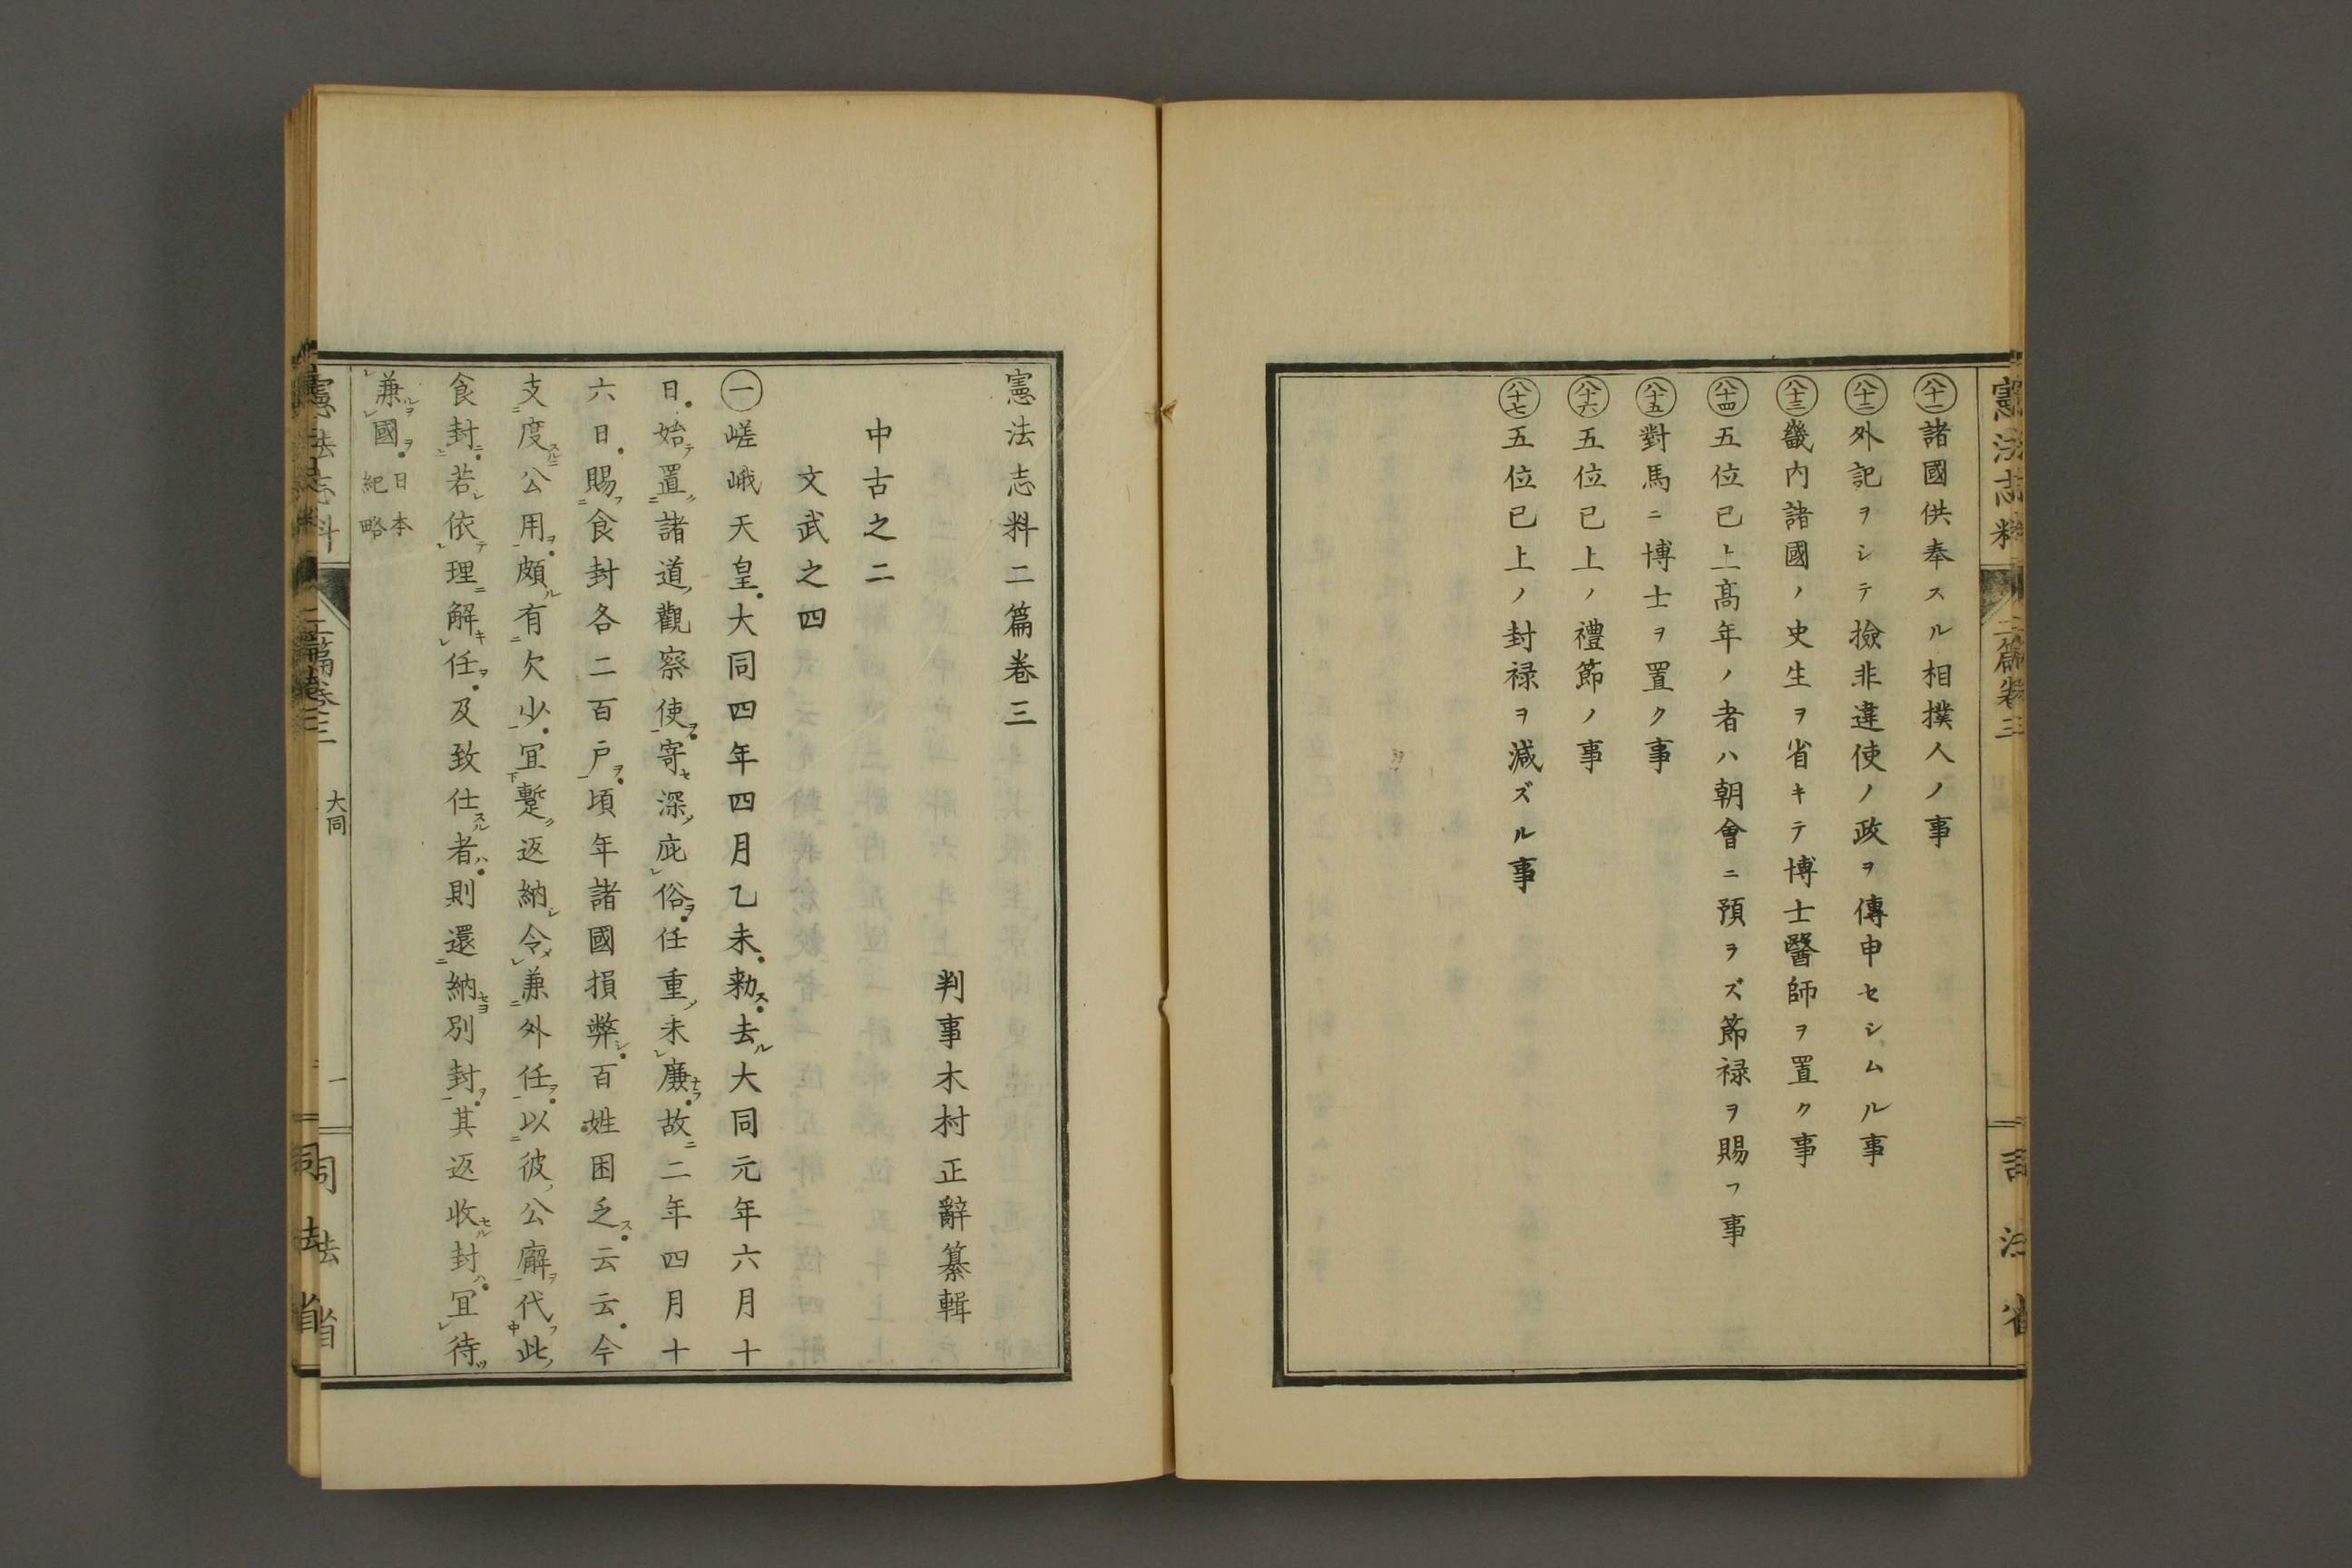 憲法志料
二篇卷三
司法省
八十一 諸國供奉スル相撲人ノ事
八十二 外記ヲシテ撿非違使ノ政ヲ傳申セシムル事
八十三 畿内諸國ノ史生ヲ省キテ博士醫師ヲ置ク事
八十四 五位已上髙年ノ者ハ朝會ニ預ラズ節禄ヲ賜フ事
八十五 對馬ニ博士ヲ置ク事
八十六 五位已上ノ禮節ノ事
八十七 五位已上ノ封禄ヲ減ズル事
憲法志料二篇卷三
判事木村正辭纂輯
中古之二
文武之四
一 嵯峨天皇大同四年四月乙未勅ス去ル大同元年六月十
日始テ置ク二諸道ノ觀察使ヲ一寄セ深ノ庇レ俗ヲ任重ノ未レ廉ナラ故ニ二年四月十
六日賜フ二食封各二百戸ヲ一頃年諸國損弊シ百姓困乏ス云云今
支二度スルニ公用ヲ一頗ル有二欠少一宜下蹔ク返納シ令メレ兼二外任ヲ一以二彼ノ公廨ヲ一代フ中此ノ
食封ニ上若シ依テレ理ニ解キレ任ヲ及致仕スル者ハ則還二納セヨ別封ヲ一其返收セル封ハ宜レ待ツ
レ兼ルヲレ國ヲ 日本紀略
憲法志料
二篇卷三
大同
一
司法省